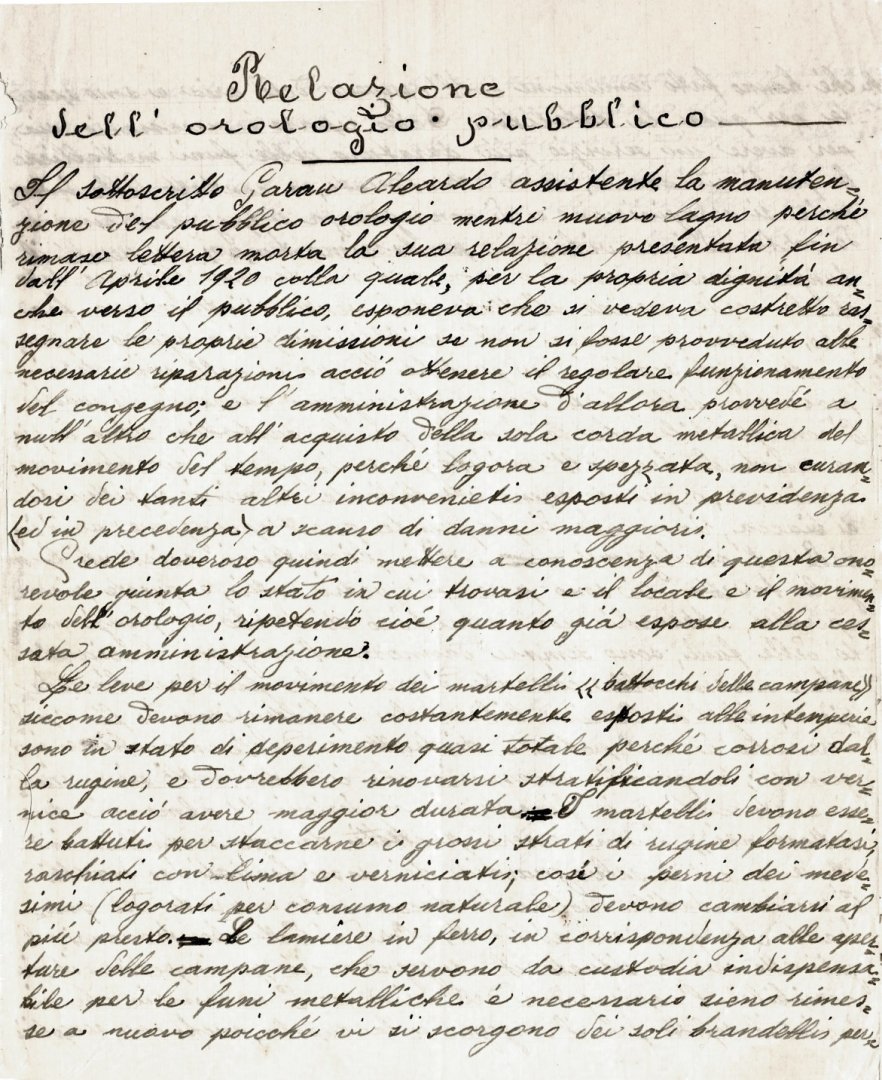 Relazione
dell' orologio pubblico
Il sottoscritto Garau Aleardo assistente la manuten=
zione del pubblico orologio mentre muove lagno perché
rimase lettera morta la sua relazione presentata fin
dall' Aprile 1920 colla quale, per la propria dignitá an=
che verso il pubblico, esponeva che si vedeva costretto ras=
segnare le proprie dimissioni se non si fosse provveduto alle
necessarie riparazioni acció ottenere il regolare funzionamento
del congegno; e l'amministrazione d'allora provvedé a
null'altro che all'acquisto della sola corda metallica del
movimento del tempo, perché logora e spezzata, non curan=
dosi dei tanti altri inconvenieti esposti in previdenza
(ed in precedenza) a scanso di danni maggiori.
Crede doveroso quindi mettere a conoscenza di questa ono=
revole giunta lo stato in cui trovasi e il locale e il movimen=
to dell' orologio, ripetendo cioé quanto giá espose alla ces=
sata amministrazione.
Le leve per il movimento dei martelli (( battocchi delle campane))
siccome devono rimanere costantemente esposti alle intemperie
sono in stato di deperimento quasi totale perché corrosi dal=
la rugine, e dovrebbero rinovarsi stratificandoli con ver=
nice acció avere maggior durata. I martelli devono esse=
re battuti per staccarne i grossi strati di rugine formatasi,
raschiati con lima e verniciati; cosí i perni dei mede=
simi (logorati per consumo naturale) devono cambiarsi al
piú presto. Le lamiere in ferro, in corrispondenza alle aper=
ture delle campane, che servono da custodia indispensa=
bile per le funi metalliche é necessario sieno rimes=
se a nuovo poicché vi si scorgono dei soli brandelli per=